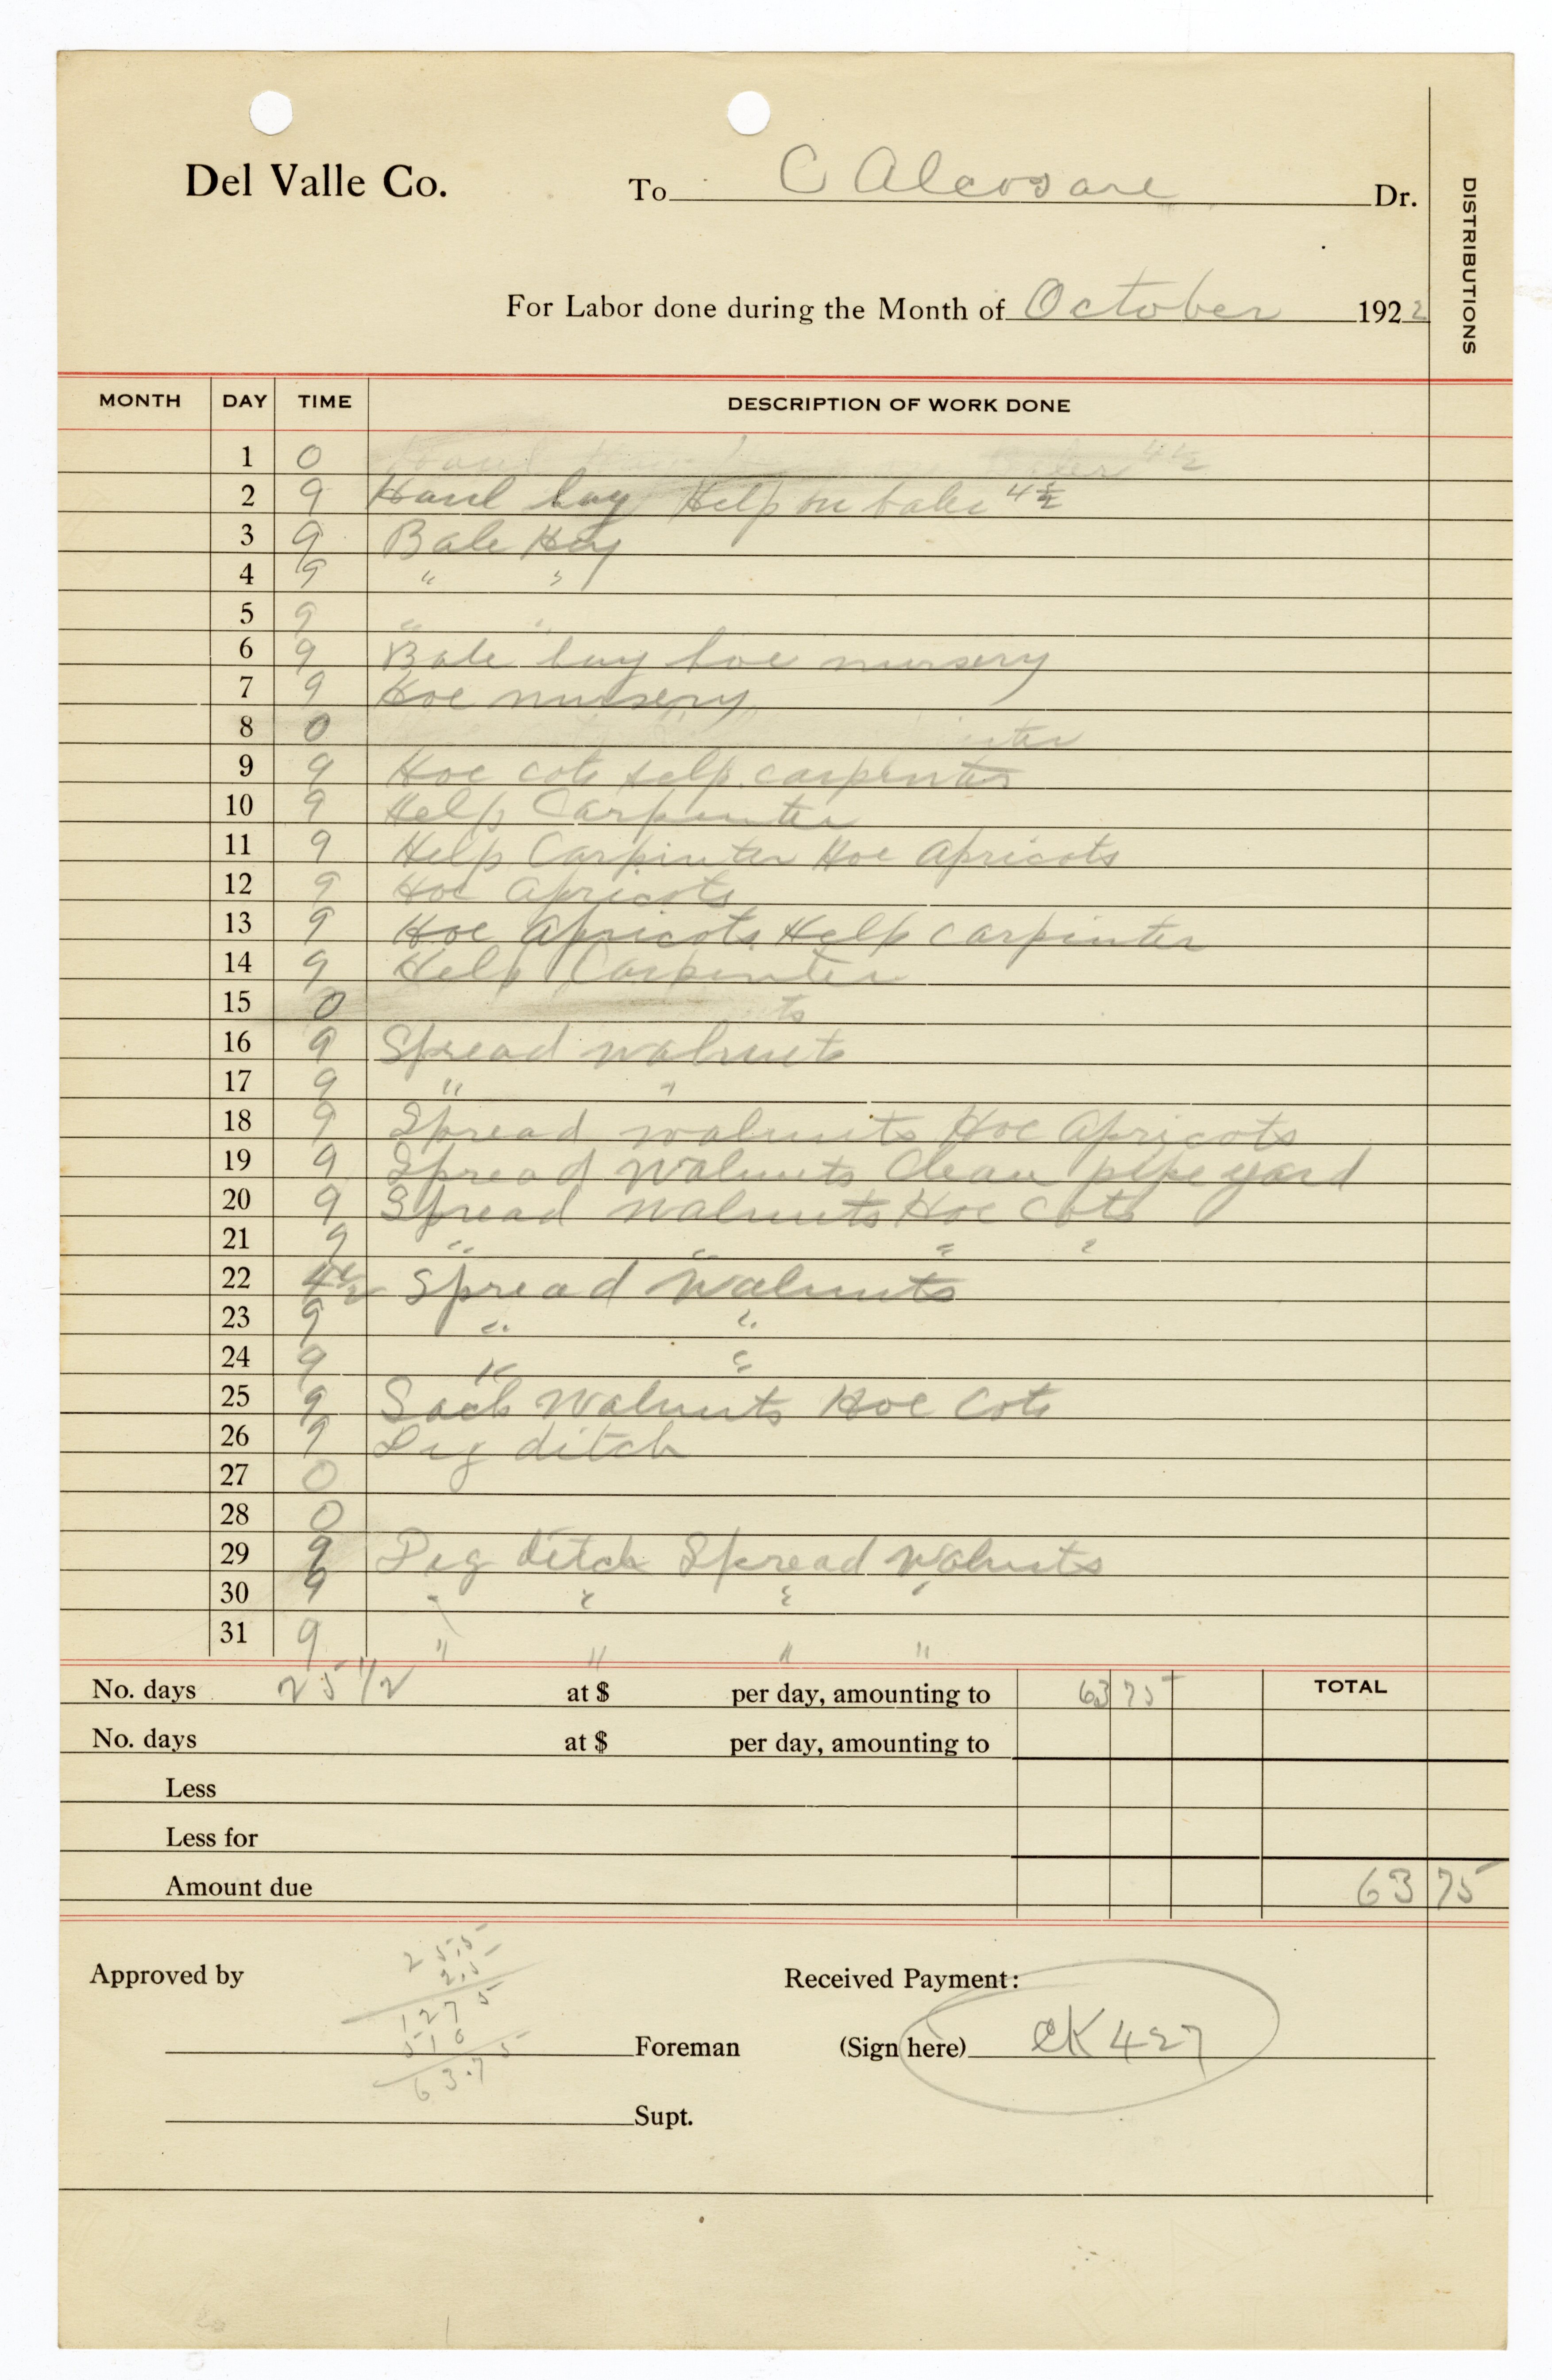 Del Valle Co. To C Alcosare Dr.
DISTRIBUTIONS
For Labor done during the Month of October 1922
MONTH DAY TIME DESCRIPTION OF WORK DONE
1 0 4 1/2
2 9 Haul hay Help on baler 4 1/2
3 9 Bale Hay
4 9 " "
5 9 " "
6 9 Bale hay hoe nursery
7 9 Hoe nursery
8 0
9 9 Hoe cots help carpenter
10 9 Help Carpenter
11 9 Help Carpinter Hoe Apricots
12 9 Hoe Apricots
13 9 Hoe Apricots Help carpinter
14 9 Help Carpenter
15 0
16 9 Spread walnuts
17 9 " "
18 9 Spread walnuts Hoe Apricots
19 9 Spread Walnuts Clean pipe yard
20 9 Spread Walnuts Hoe Cots
21 9 " " " "
22 4 1/2 Spread Walnuts
23 9 " "
24 9 " "
25 9 Sack Walnuts Hoe Cots
26 9 Dig ditch
27 0
28 0
29 9 Dig ditch Spread Walnuts
30 9 " " " "
31 9 " " " "
No. days 25 1/2 at $ per day, amounting to 63 75 TOTAL
No. days at $ per day, amounting to
Less
Less for
Amount due 63 75
25.5
2.5
Approved by Received Payment:
1275
510
Foreman (Sign here) CK 427
63.75
Supt.